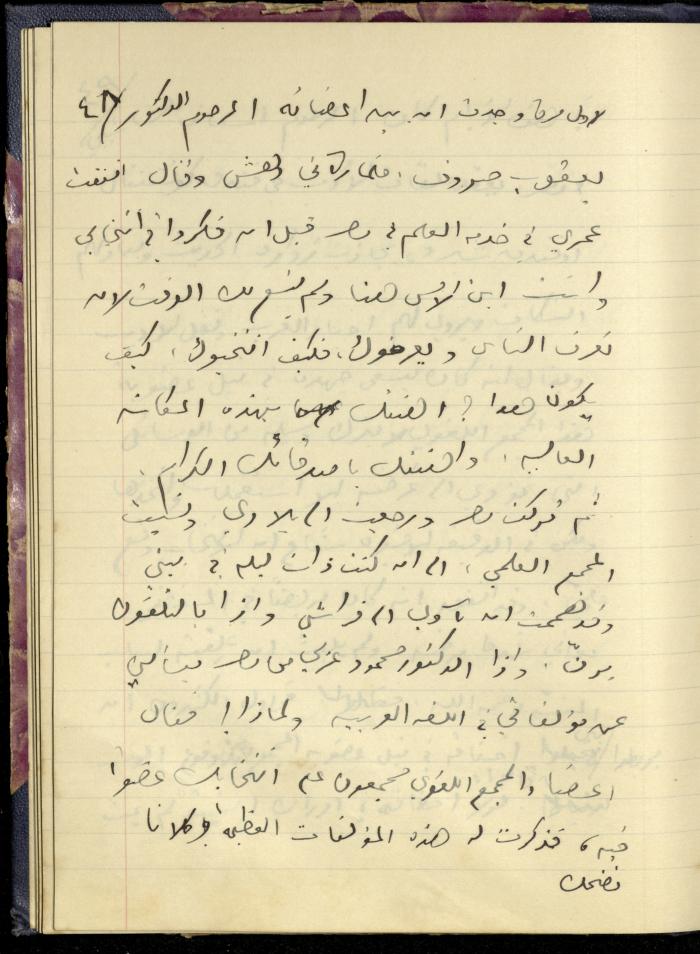 لاول مرة وجدت ان بين اعضائه المرحوم الدكتور / ٤٨
يعقوب صروف، فلما رآني دهش وقال انفقت
عمري في خدمة العلم في مصر قبل ان فكروا في انتخابي
وانت ابن الامس هنا ولم يتسع لك الوقت لان
تعرف الناس ويعرفوك، فكيف انتخبوك، كيف
يكون هذا؟ اهنئك بهذه المكانة
العالية، واهنئك باصدقائك الكرام.
ثم تركت مصر ورجعت الى بلادي ونسيت
المجمع العلمي، الى ان كنت ذات ليلة في بيتي
وقد هممت ان آوي الى فراشي واذا بالتلفون
يرنّ. واذا الدكتور محمود عزمي من مصر يسألني
عن مؤلفاتي في اللغة العربية ولماذا؟ فقال
اعضاء المجمع اللغوي مجمعون على انتخابك عضوا
فيه، فذكرت له هذه المؤلفات العظيمة! وكلانا
نضحك